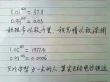 1.01³⁶⁵ = 37.8
0.99³⁶⁵ = 0.03
积跬步以致千里，积怠惰以致深渊
1.02³⁶⁵ = 1377.4
0.98³⁶⁵ = 0.0006
只比你努力一点的人，其实已经甩你很远